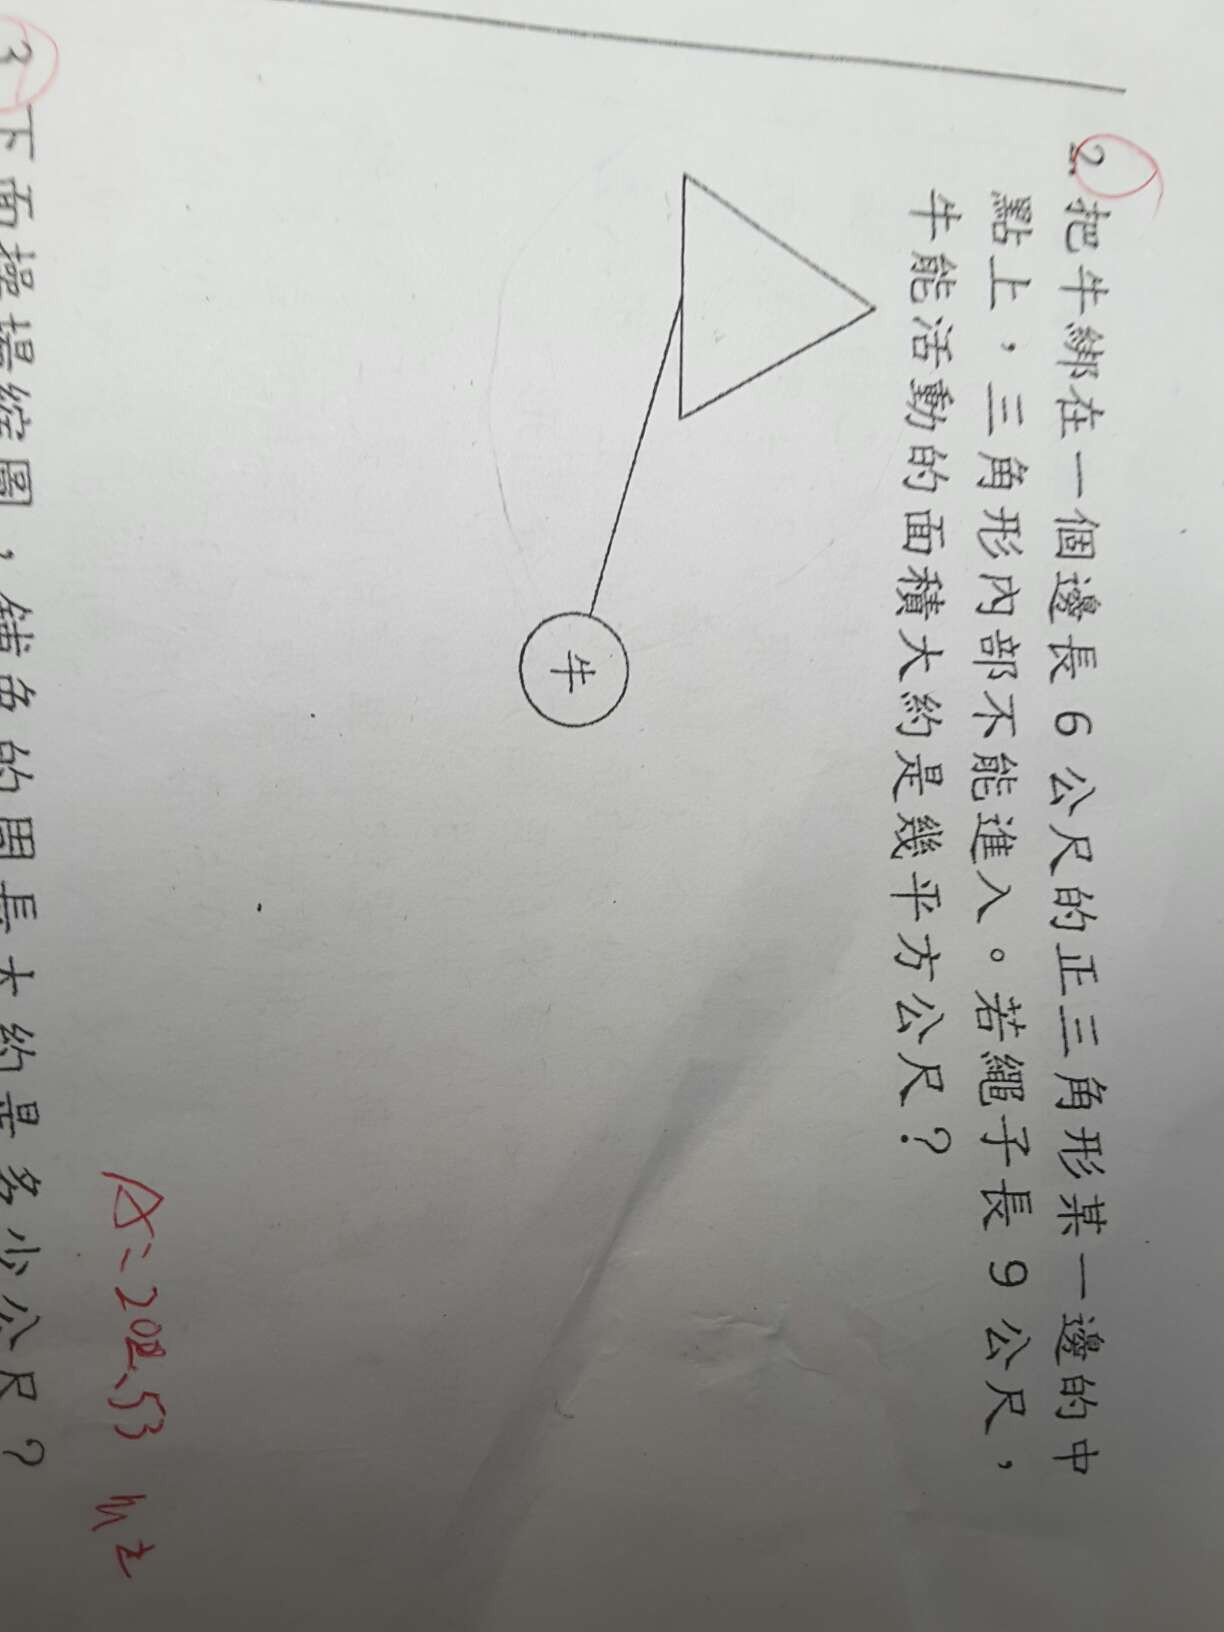 2. 把牛綁在一個邊長6公尺的正三角形某一邊的中
點上，三角形內部不能進入。若繩子長9公尺，
牛能活動的面積大約是幾平方公尺？
牛
A=202.53 m2
3 下面操場綜圖，鋪色的周長大約是多少公尺？